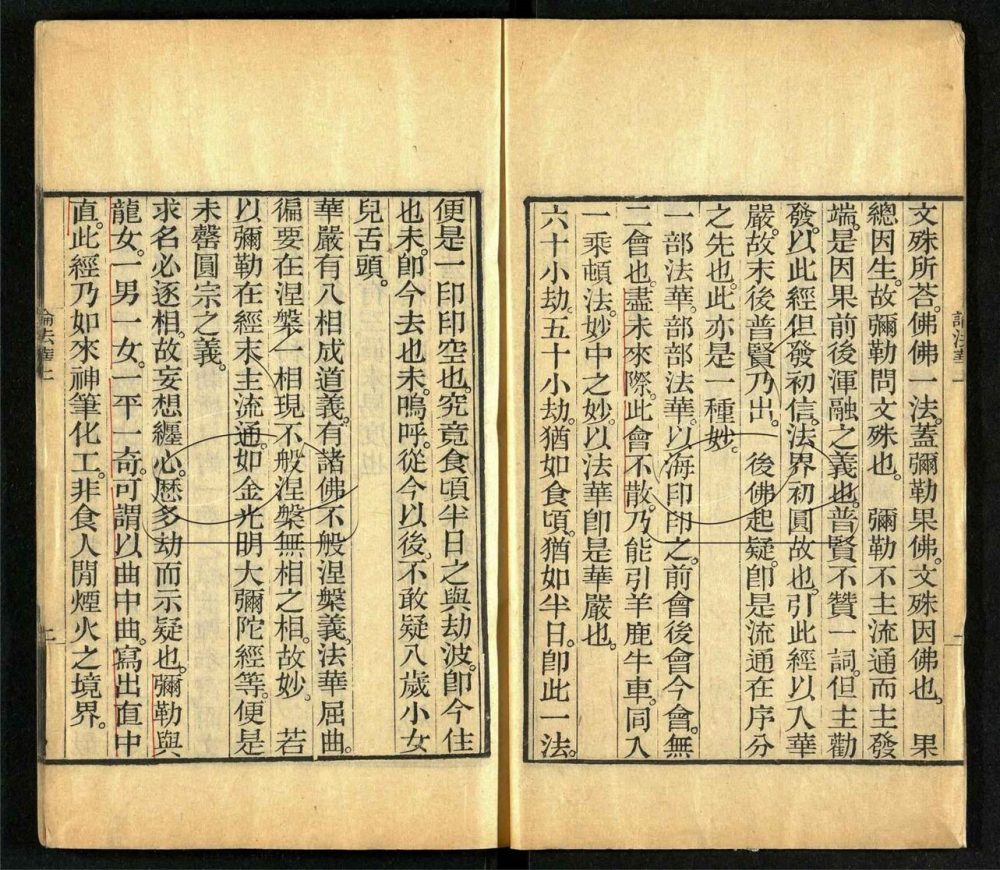 文殊所荅。佛佛一法。蓋彌勒果佛。文殊因佛也。 果
總因生。故彌勒問文殊也。 彌勒不主流通而主發
端。是因果前後渾融之義也。普賢不贊一詞。但主勸
發。以此經但發初信。法界初圓故也。引此經以入華
嚴。故末後普賢乃出。 後佛起疑。卽是流通在序分
之先也。此亦是一種妙。
一部法華。部部法華。以海印印之。前會後會今會。無
二會也。盡未來際。此會不散。乃能引羊鹿牛車。同入
一乘頓法。妙中之妙。以法華卽是華嚴也。
六十小劫。五十小劫。猶如食頃。猶如半日。卽此一法。
便是一印印空也。究竟食頃半日之與劫波。卽今住
也未。卽今去也未。嗚呼。從今以後。不敢疑八歲小女
兒舌頭。
華嚴有八相成道義。有諸佛不般涅槃義。法華屈曲。
徧要在涅槃之一相現不般涅槃無相之相。故妙。 若
以彌勒在經末主流通。如金光明大彌陀經等。便是
未罄圓宗之義。
求名必逐相。故妄想纏心。歷多劫而示疑也。彌勒與
龍女。一男一女。一平一奇。可謂以曲中曲。寫出直中
直。此經乃如來神筆化工。非食人閒煙火之境界。
論法華上
二